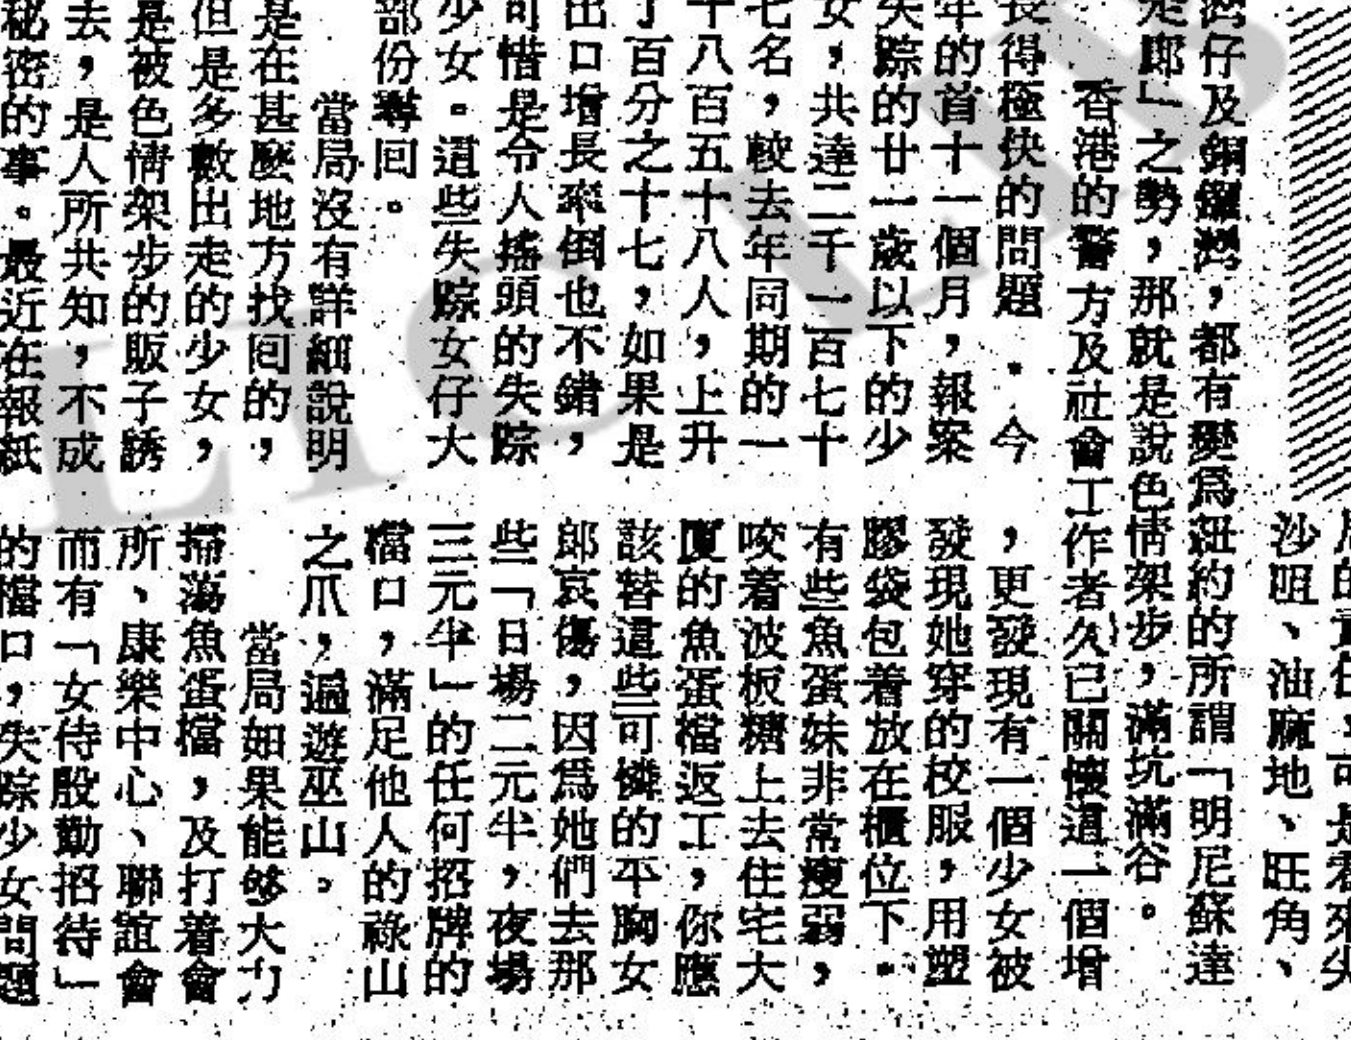 局的責任,可是看來尖
沙咀、油麻地、旺角、
灣仔及銅鑼灣,都有變為紐約的所謂「明尼蘇達
走廊」之勢,那就是說色情架步,滿坑滿谷。
香港的警方及社會工作者久已關懷這一個增
長得極快的問題.今
年的首十一個月,報案
失踪的廿一歲以下的少
女,共達二千一百七十
七名,較去年同期的一
千八百五十八人,上升
了百分之十七,如果是
出口增長率倒也不錯,
可惜是令人搖頭的失踪
少女。這些失踪女仔大
部份尋回。
當局沒有詳細說明
是在甚麼地方找回的,
但是多數出走的少女,
是被色情架步的販子誘
去,是人所共知,不成
秘密的事。最近在報紙
,更發現有一個少女被
發現她穿的校服,用塑
膠袋包着放在櫃位下。
有些魚蛋妹非常瘦弱,
咬着波板糖上去住宅大
廈的魚蛋檔返工,你應
該替這些可憐的平胸女
郎哀傷,因為她們去那
些「日場二元半,夜場
三元半」的任何招牌的
檔口,滿足他人的祿山
之爪,遍遊巫山。
當局如果能够大力
掃蕩魚蛋檔,及打着會
所、康樂中心、聯誼會
而有「女侍殷勤招待」
的檔口,失踪少女問題
LIC LIB